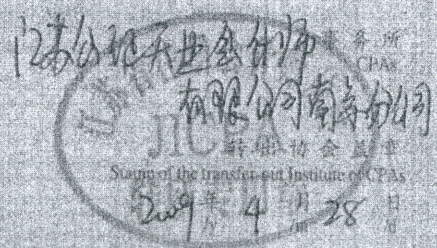 江苏公证天业会计师事务所
CPAs
有限公司南京分公司
JICPA
转出协会盖章
Stamp of the transfer-out Institute of CPAs
2009年4月28日